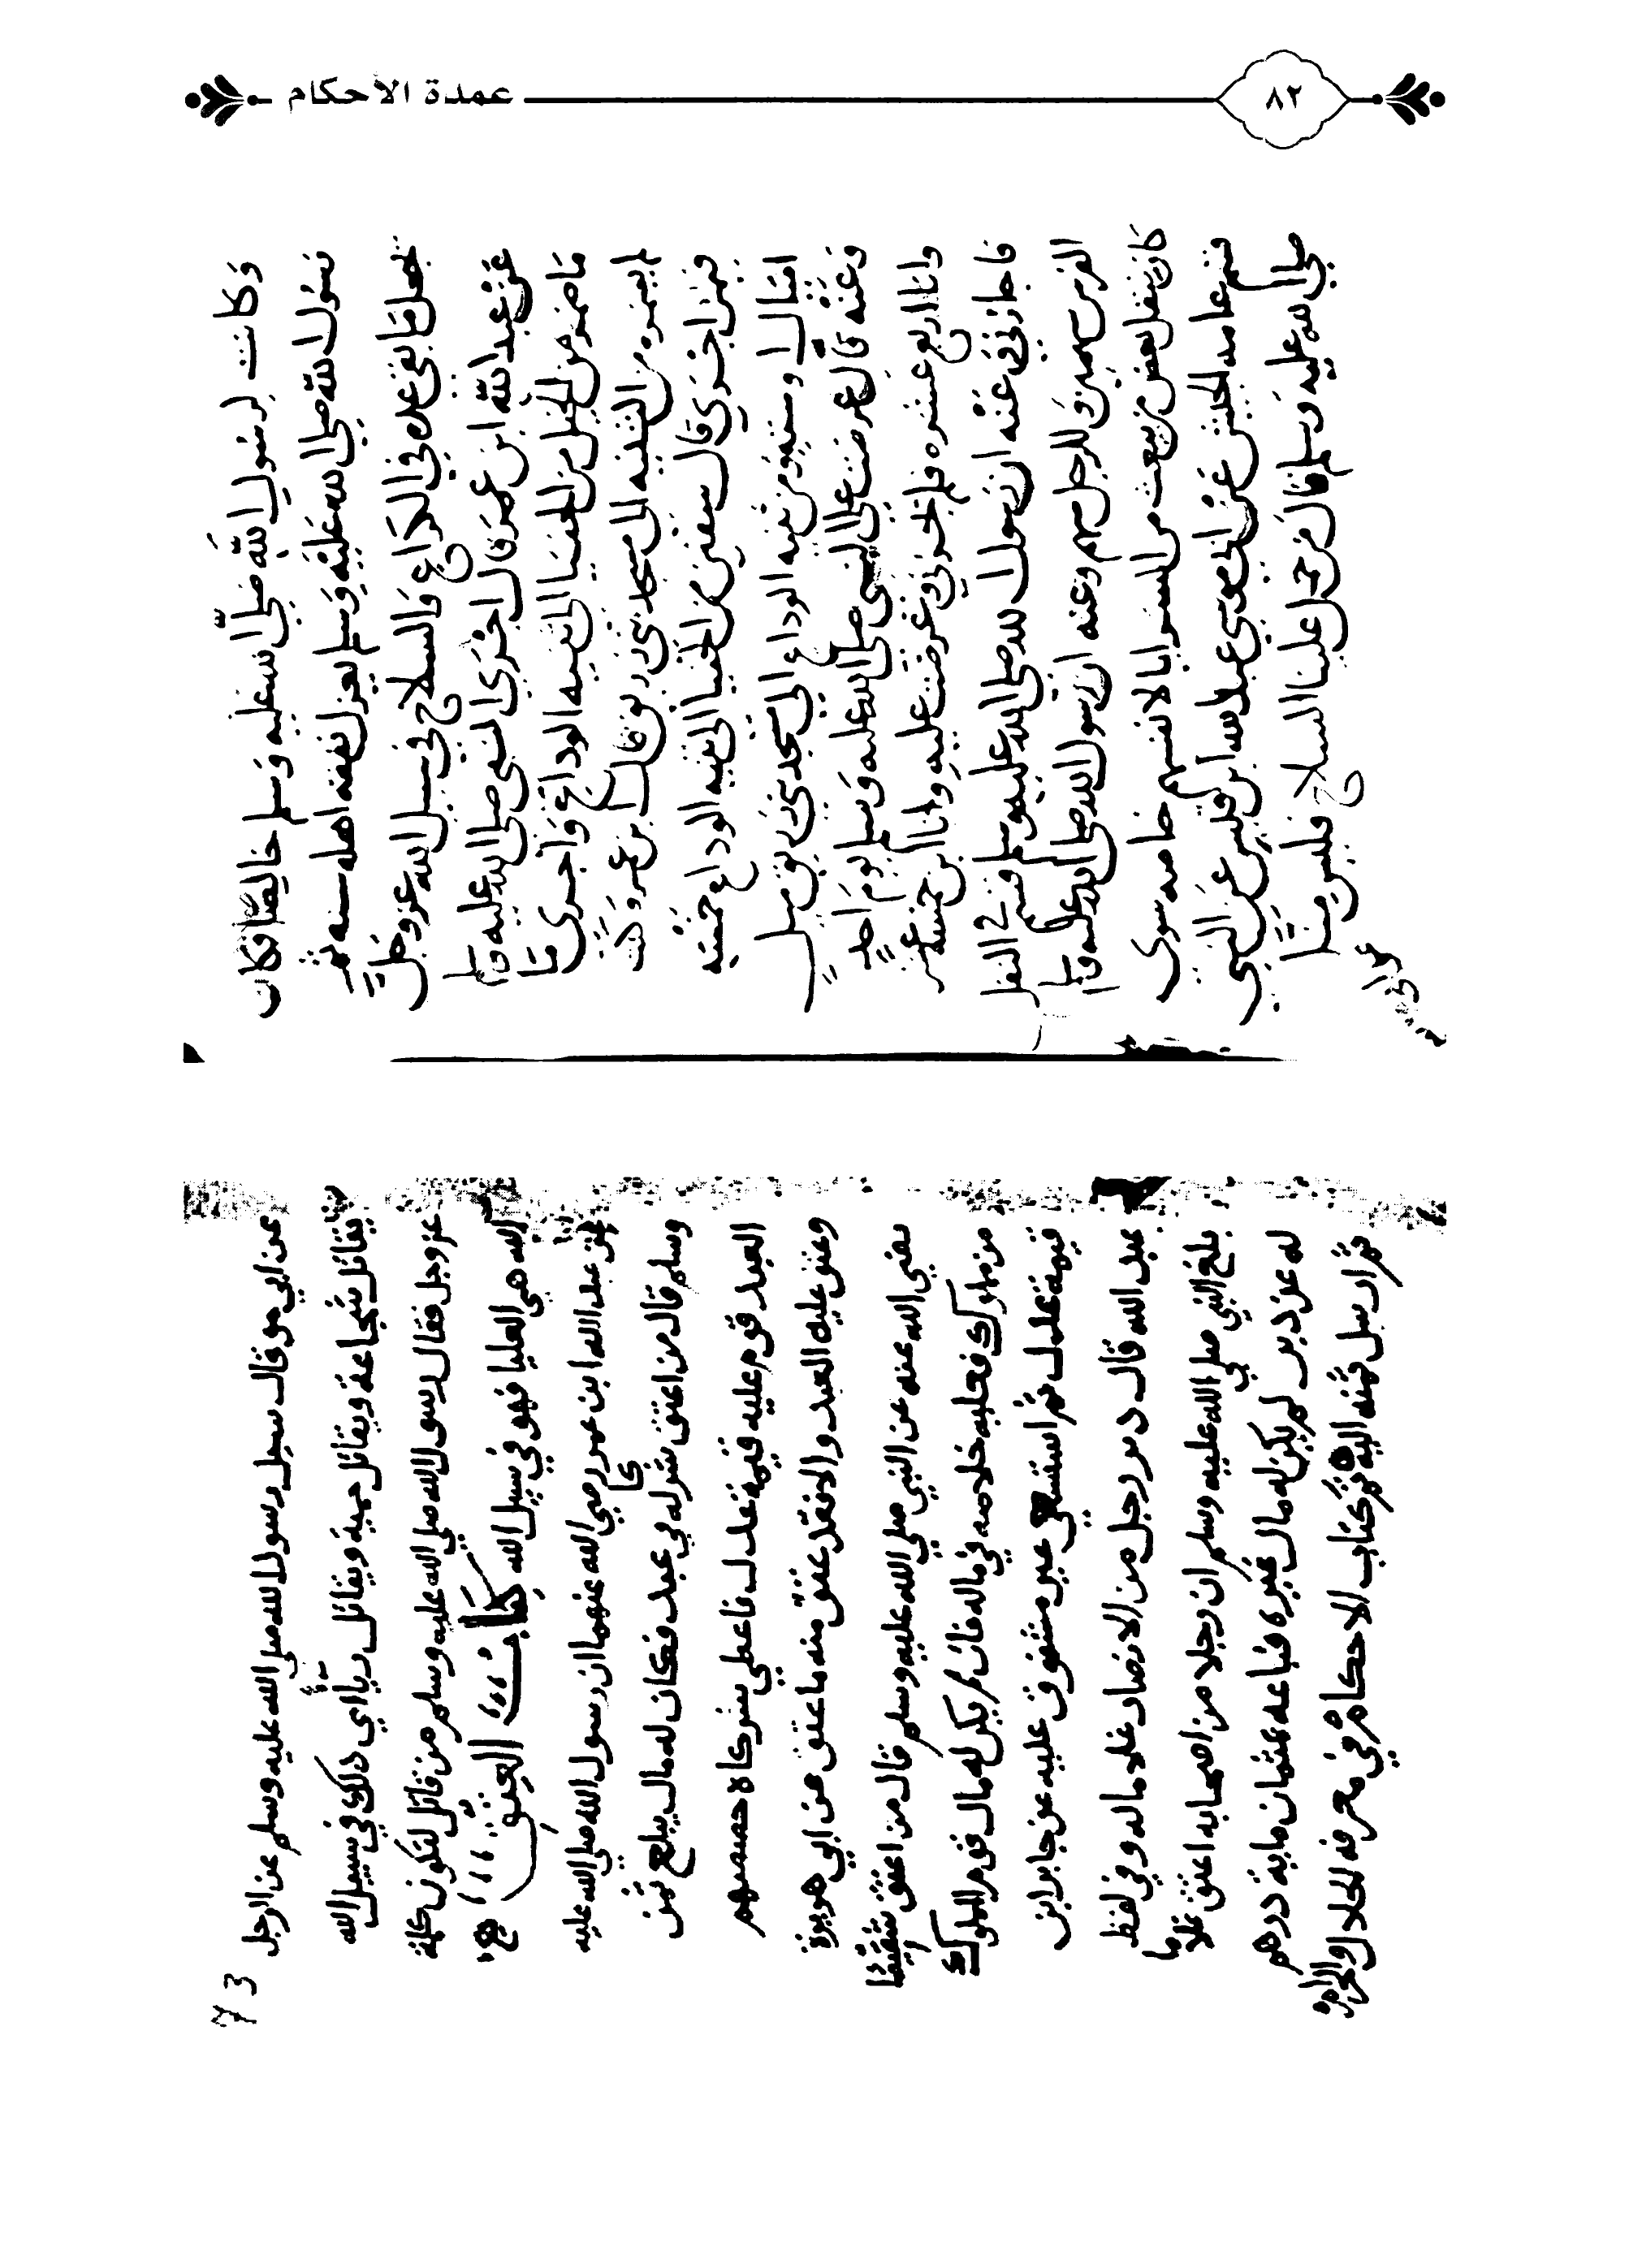 عمدة الأحكام
٨٢
وكانت لرسول الله صلى الله عليه وسلم خالصا فكان
رسول الله صلى الله عليه وسلم يعزل نفقة اهله سنه ثم
يجعل ما بقي عده في الكراع والسلاح في سبيل الله عز وجل
عن عبد الله ابن عمر قال اجري النبي صلى الله عليه وسلم
ما ضمر من الخيل من الحفيا الى ثنيه الوداع واجرى ما
لم يضمر من الثنيه الى مسجد بني زريق قال ابن عمر وكنت
فيمن اجري قال سفين من الحفيا الى ثنيه الوداع خمسه
اميال او سته ومن ثنيه الوداع الي مسجد بني زريق ميل
وعنه قال عرضت على النبي صلى الله عليه وسلم يوم احد
وانا ابن اربع عشره فلم يجزني وعرضت عليه وانا ابن خمسه عشر
فاجازني وعنه ان رسول الله صلى الله عليه وسلم قسم في النفل
الفرس سهمين وللرجل سهم وعنه ان رسول الله صلى الله عليه وسلم
كان ينفل بعض من يبعث من السرايا لانفسهم خاصه سوى
قسم عامه الجيش عن ابي موسي عبد الله ابن قيس عن النبي
صلي الله عليه وسلم قال من حمل علينا السلاح فليس منا
عن ابي
عن ابي مو قال سيل رسول الله صلى الله عليه وسلم عن الرجل
يقاتل شجاعة ويقاتل حمية ويقاتل رياآي ذلك في سبيل الله
عز وجل فقال رسول الله صلي الله عليه وسلم من قاتل لتكون كلمة
الله هي العليا فهو في سبيل الله كتاب العتق
عن عبد الله ابن عمر رضي الله عنهما ان رسول الله صلي الله عليه
وسلم قال من اعتق شركا له في عبد فكان له مال يبلغ ثمن
العبد قوم عليه قيمة عدل فاعطي شركاه حصصهم
وعتق عليه العبد والا فقد عتق منه ما عتق عن ابي هريرة
رضي الله عنه عن النبي صلي الله عليه وسلم قال من اعتق شقيصا
من مملوك فعليه خلاصه في ماله فان لم يكن له مال قوم المملوك
قيمة عدل ثم استسعي غير مشقوق عليه عن جابر ابن
عبد الله قال دبر رجل من الانصار غلاما له وفي لفظ
بلغ النبي صلي الله عليه وسلم ان رجلا من اصحابه اعتق غلاما
له عن دبر لم يكن له مال غيره فباعه بثمان ماية درهم
ثم ارسل ثمنه اليه تم كتاب الاحكام في معرفه الحلال والحرام
73